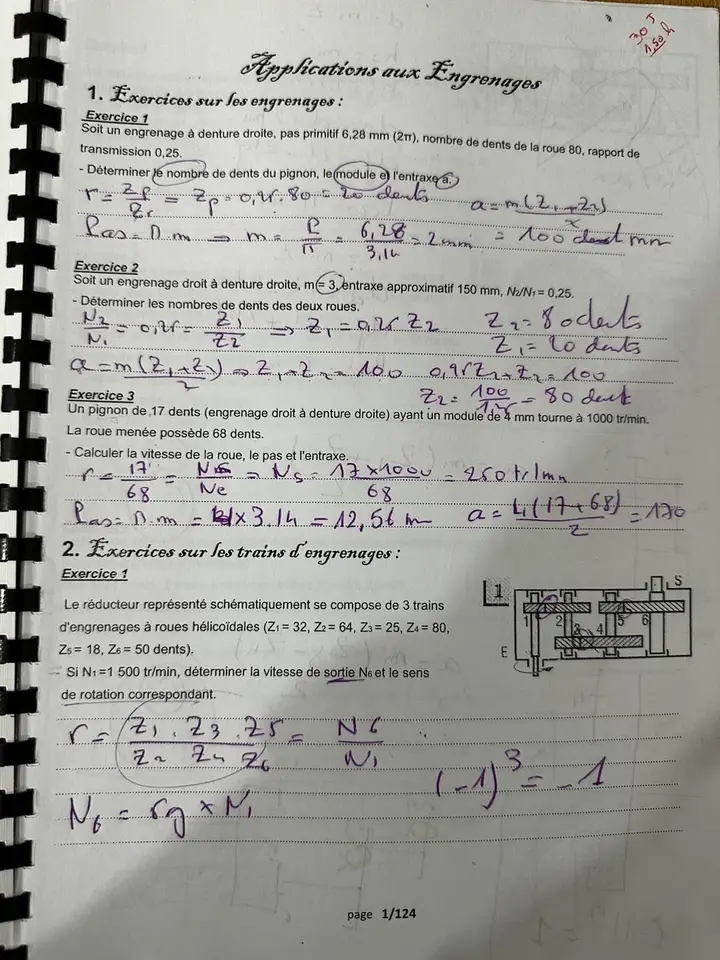 30 J
1,50 h
Applications aux Engrenages
1. Exercices sur les engrenages :
Exercice 1
Soit un engrenage à denture droite, pas primitif 6,28 mm (2π), nombre de dents de la roue 80, rapport de
transmission 0,25.
- Déterminer le nombre de dents du pignon, le module et l'entraxe a.
r = Zp/Zr = Zp = 0,25.80 = 20 dents a = m(Z1+Z2)/2
Pas = π.m → m = P/π = 6,28/3,14 = 2 mm = 100 mm
Exercice 2
Soit un engrenage droit à denture droite, m = 3, entraxe approximatif 150 mm, N2/N1 = 0,25.
- Déterminer les nombres de dents des deux roues.
N2/N1 = 0,25 = Z1/Z2 ⇒ Z1 = 0,25 Z2 Z2 = 80 dents
Z1 = 20 dents
a = m(Z1+Z2)/2 ⇒ Z1+Z2 = 100 0,25Z2+Z2 = 100
Exercice 3 Z2 = 100/1,25 = 80 dent
Un pignon de 17 dents (engrenage droit à denture droite) ayant un module de 4 mm tourne à 1000 tr/min.
La roue menée possède 68 dents.
- Calculer la vitesse de la roue, le pas et l'entraxe.
r = 17/68 = Ns/Ne ⇒ Ns = 17×1000/68 = 250 tr/mn
Pas = π.m = 4×3.14 = 12,56 m a = 4(17+68)/2 = 170
2. Exercices sur les trains d'engrenages :
Exercice 1
Le réducteur représenté schématiquement se compose de 3 trains
d'engrenages à roues hélicoïdales (Z1 = 32, Z2 = 64, Z3 = 25, Z4 = 80,
Z5 = 18, Z6 = 50 dents).
Si N1 =1 500 tr/min, déterminer la vitesse de sortie N6 et le sens
de rotation correspondant.
1
S
1 2 5 6
3 4
E
r = Z1 . Z3 . Z5 / Z2 Z4 Z6 = N6/N1
(-1)³ = -1
N6 = rg × N1
page 1/124